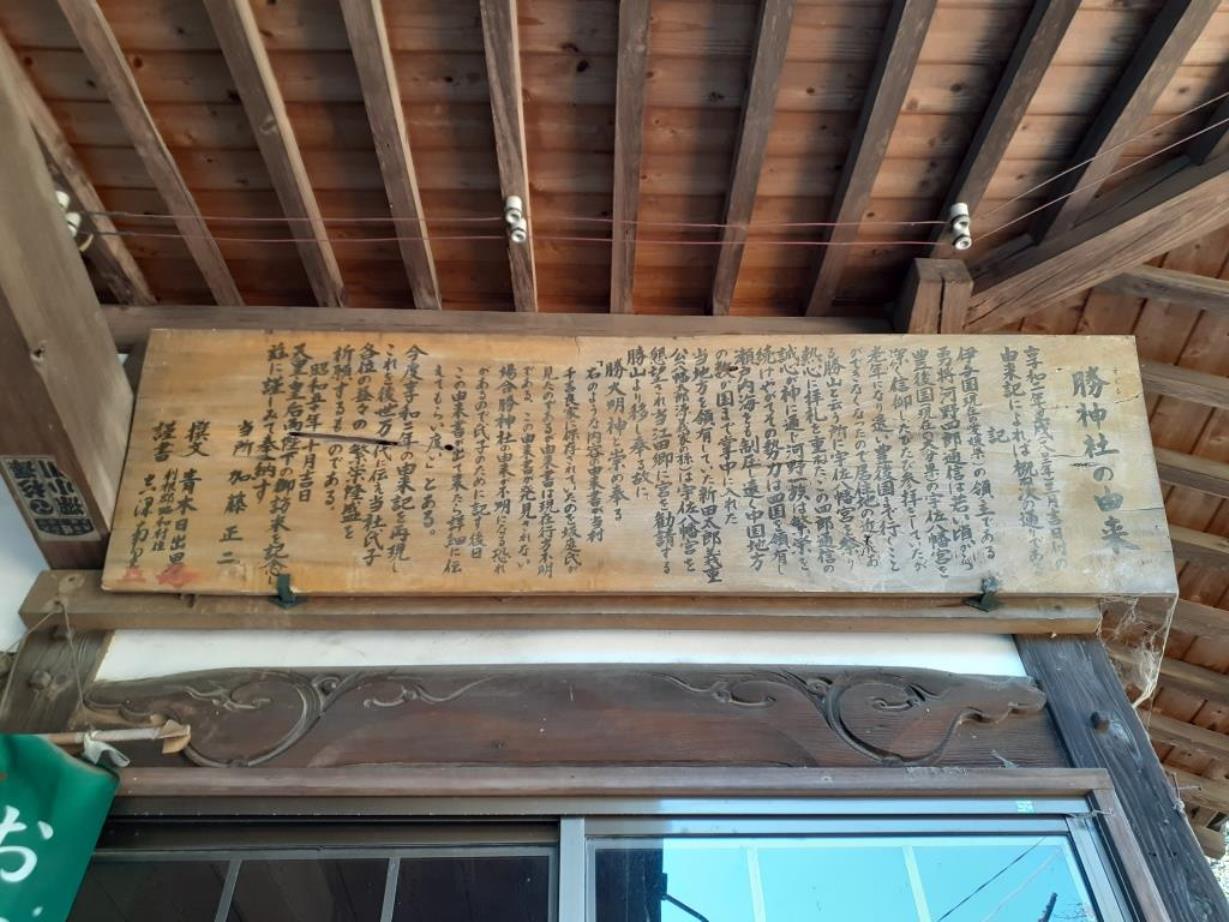 勝神社の由来
享和二年
由来記によれば概次の通りであ
記
伊予国現在愛媛県の領主である
勇将河野四郎通信は若い頃から
豊後国現在の大分県の宇佐八幡宮を
深く信仰したびたび参拝をしていたが
老年になり遠い豊後国まで行くこと
ができなくなったので居住地の近
る勝山と云ふ所に宇佐八幡宮を祭り
熱心に拝礼を重ねたこの四郎通信の
誠心が神に通じ河野一族は繁栄を
続けやがてその勢力は四国を領有し
瀬戸内海をも制圧し遠く中国地方
の数か国まで掌中に入れた
当地方を領有していた新田太郎義重
公八幡太郎源義家の孫は宇佐八幡宮を
懇望され当江田郷に宮を勧請する
勝山より移し奉る故に
勝大明神と崇め奉る
「右のような内容由来書が当村
千吉良家に保存されていたのを坂庭氏が
見たのであるが由来書は現在行方不明
である、この由来書が発見されない
場合勝神社の由来が不明になる恐れ
があるので氏子のために記す後日
この由来書が出て来たら詳細に伝
えてもらい度い」とある。
今度享和二年の由来記を再現し
これを後世万代に伝え当社氏子
各位の益々の繁栄隆盛を
祈願するものである。
昭和五十年十月吉日
天皇皇后両陛下の御訪米を記念
并に謹しみて奉納す
当所 加藤正二
撰文 青木日出男
謹書
お